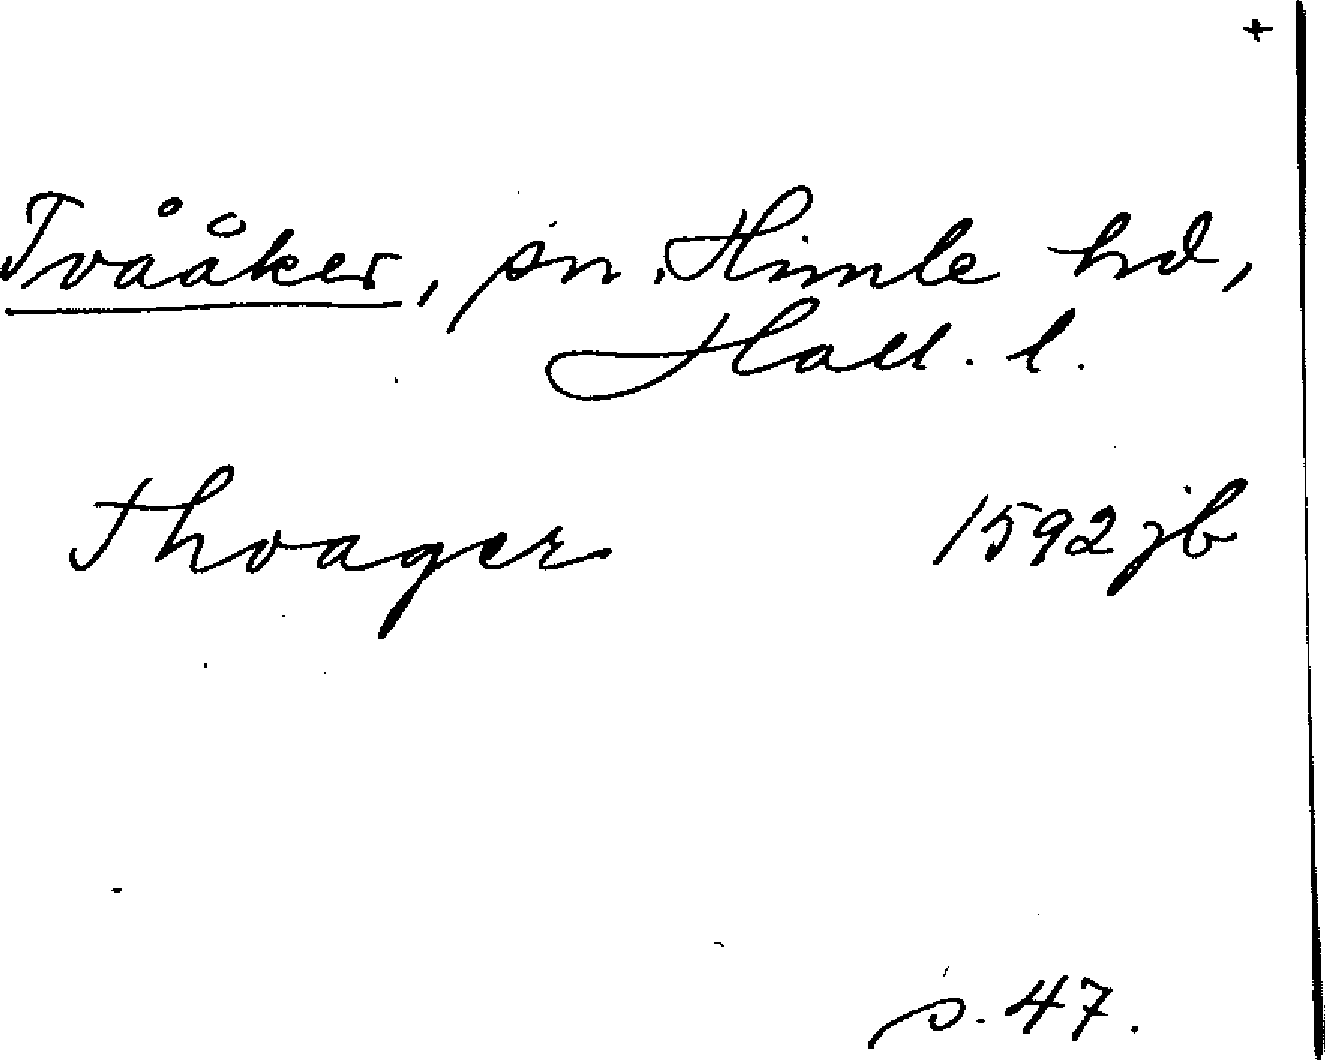 +
Tvååker, sn, Himle hd,
Hall. l.
Thvager 1592 jb
s. 47.